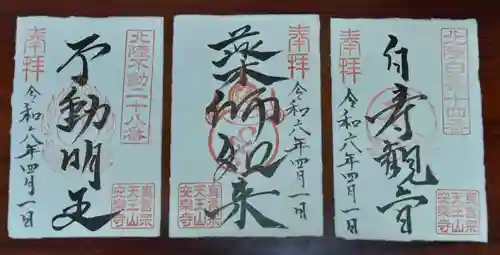 奉拝
北陸不動二十八番
不動明王
令和六年四月一日
真言宗
天王山
安楽寺
薬師如来
奉拝
令和六年四月一日
真言宗
天王山
安楽寺
奉拝
白寿観音
令和六年四月一日
真言宗
天王山
安楽寺